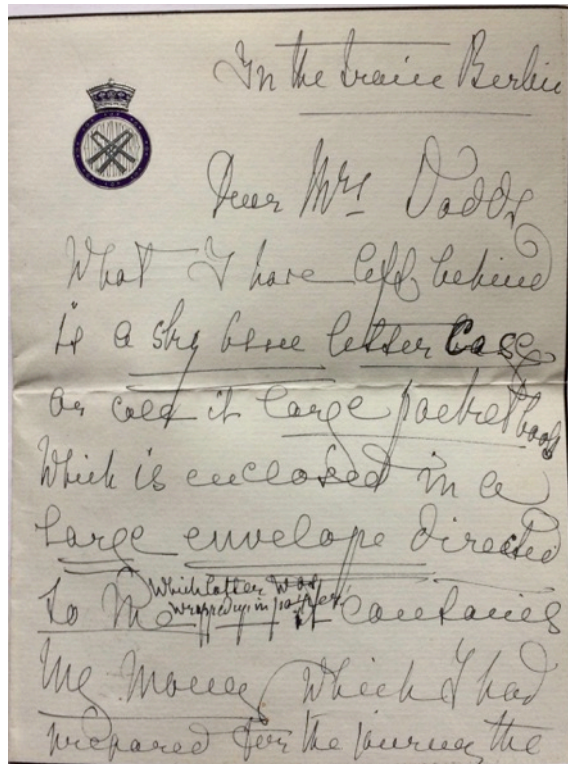 In the train Berlin
Dear Mrs Dodds
What I have left behind
is a sky blue letter Case
or call it large pocket book
Which is enclosed in a
large envelope directed
to Me which latter was
wrapped up in paper. it contains
My Money Which I had
prepared for the journey the